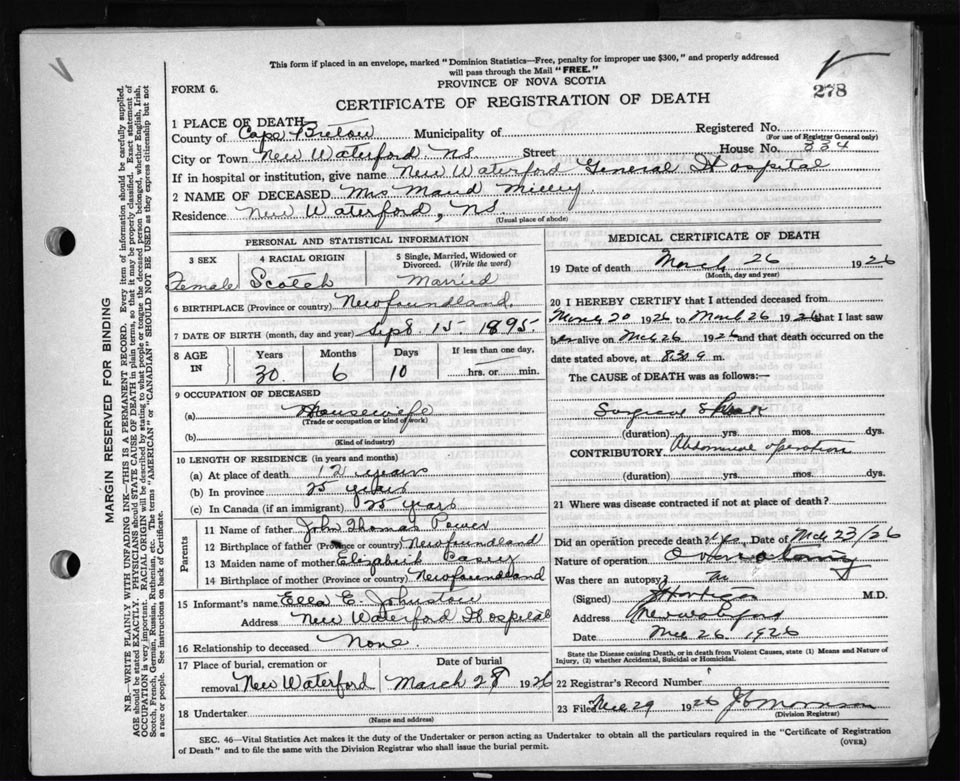 This form if placed in an envelope, marked "Dominion Statistics—Free, penalty for improper use $300," and properly addressed
will pass through the Mail "FREE."
PROVINCE OF NOVA SCOTIA
FORM 6.
278
CERTIFICATE OF REGISTRATION OF DEATH
1 PLACE OF DEATH
County of Cape Breton Municipality of Registered No.
(For use of Registrar General only)
City or Town New Waterford NS Street House No. 334
If in hospital or institution, give name New Waterford General Hospital
2 NAME OF DECEASED Mrs Maud Milley
Residence New Waterford, NS.
(Usual place of abode)
PERSONAL AND STATISTICAL INFORMATION
3 SEX 4 RACIAL ORIGIN 5 Single, Married, Widowed or
Divorced. (Write the word)
Female Scotch Married
6 BIRTHPLACE (Province or country) Newfoundland.
7 DATE OF BIRTH (month, day and year) Sept. 15. 1895.
8 AGE IN Years Months Days If less than one day,
30 6 10 hrs. or min.
9 OCCUPATION OF DECEASED
(a) Housewife
(Trade or occupation or kind of work)
(b)
(Kind of industry)
10 LENGTH OF RESIDENCE (in years and months)
(a) At place of death 12 years
(b) In province 25 years
(c) In Canada (if an immigrant) 25 years
Parents
11 Name of father John Thomas Power
12 Birthplace of father (Province or country) Newfoundland
13 Maiden name of mother Elizabeth
14 Birthplace of mother (Province or country) Newfoundland
15 Informant's name Ella E. Johnston
Address New Waterford Hospital
16 Relationship to deceased None.
17 Place of burial, cremation or Date of burial
removal New Waterford March 28 1926
18 Undertaker
(Name and address)
MEDICAL CERTIFICATE OF DEATH
19 Date of death March 26 1926
(Month, day and year)
20 I HEREBY CERTIFY that I attended deceased from
March 20 1926 to March 26 1926 that I last saw
her alive on Mch 26 1926 and that death occurred on the
date stated above, at 8.30 a m.
The CAUSE of DEATH was as follows:—
Surgical Shock
(duration) yrs. mos. dys.
CONTRIBUTORY Abdominal operation
(duration) yrs. mos. dys.
21 Where was disease contracted if not at place of death?
Did an operation precede death? Yes Date of Mch 23/26
Nature of operation
Was there an autopsy? No
(Signed) M.D.
Address New Waterford
Date Mch 26 1926
State the Disease causing Death, or in death from Violent Causes, state (1) Means and Nature of
Injury, (2) whether Accidental, Suicidal or Homicidal.
22 Registrar's Record Number
23 Filed Mch 29 1926 Morrison
(Division Registrar)
SEC. 46—Vital Statistics Act makes it the duty of the Undertaker or person acting as Undertaker to obtain all the particulars required in the "Certificate of Registration
of Death" and to file the same with the Division Registrar who shall issue the burial permit.
(OVER)
MARGIN RESERVED FOR BINDING
N.B.—WRITE PLAINLY WITH UNFADING INK—THIS IS A PERMANENT RECORD. Every item of information should be carefully supplied.
AGE should be stated EXACTLY. PHYSICIANS should STATE CAUSE OF DEATH in plain terms, so that it may be properly classified. Exact statement of
OCCUPATION is very important. RACIAL ORIGIN will be described by stating to what people or tongue the deceased person belonged, whether English, Irish,
Scotch, French, German, Russian, Ruthenian, etc. The terms "AMERICAN" or "CANADIAN" SHOULD NOT BE USED as they express citizenship but not
a race or people. See instructions on back of Certificate.